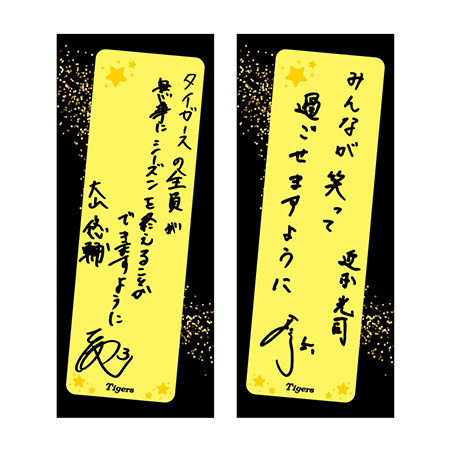 タイガースの全員が
無事にシーズンを終えることが
できますように
大山悠輔
3
Tigers
みんなが笑って
過ごせますように
近本光司
5
Tigers